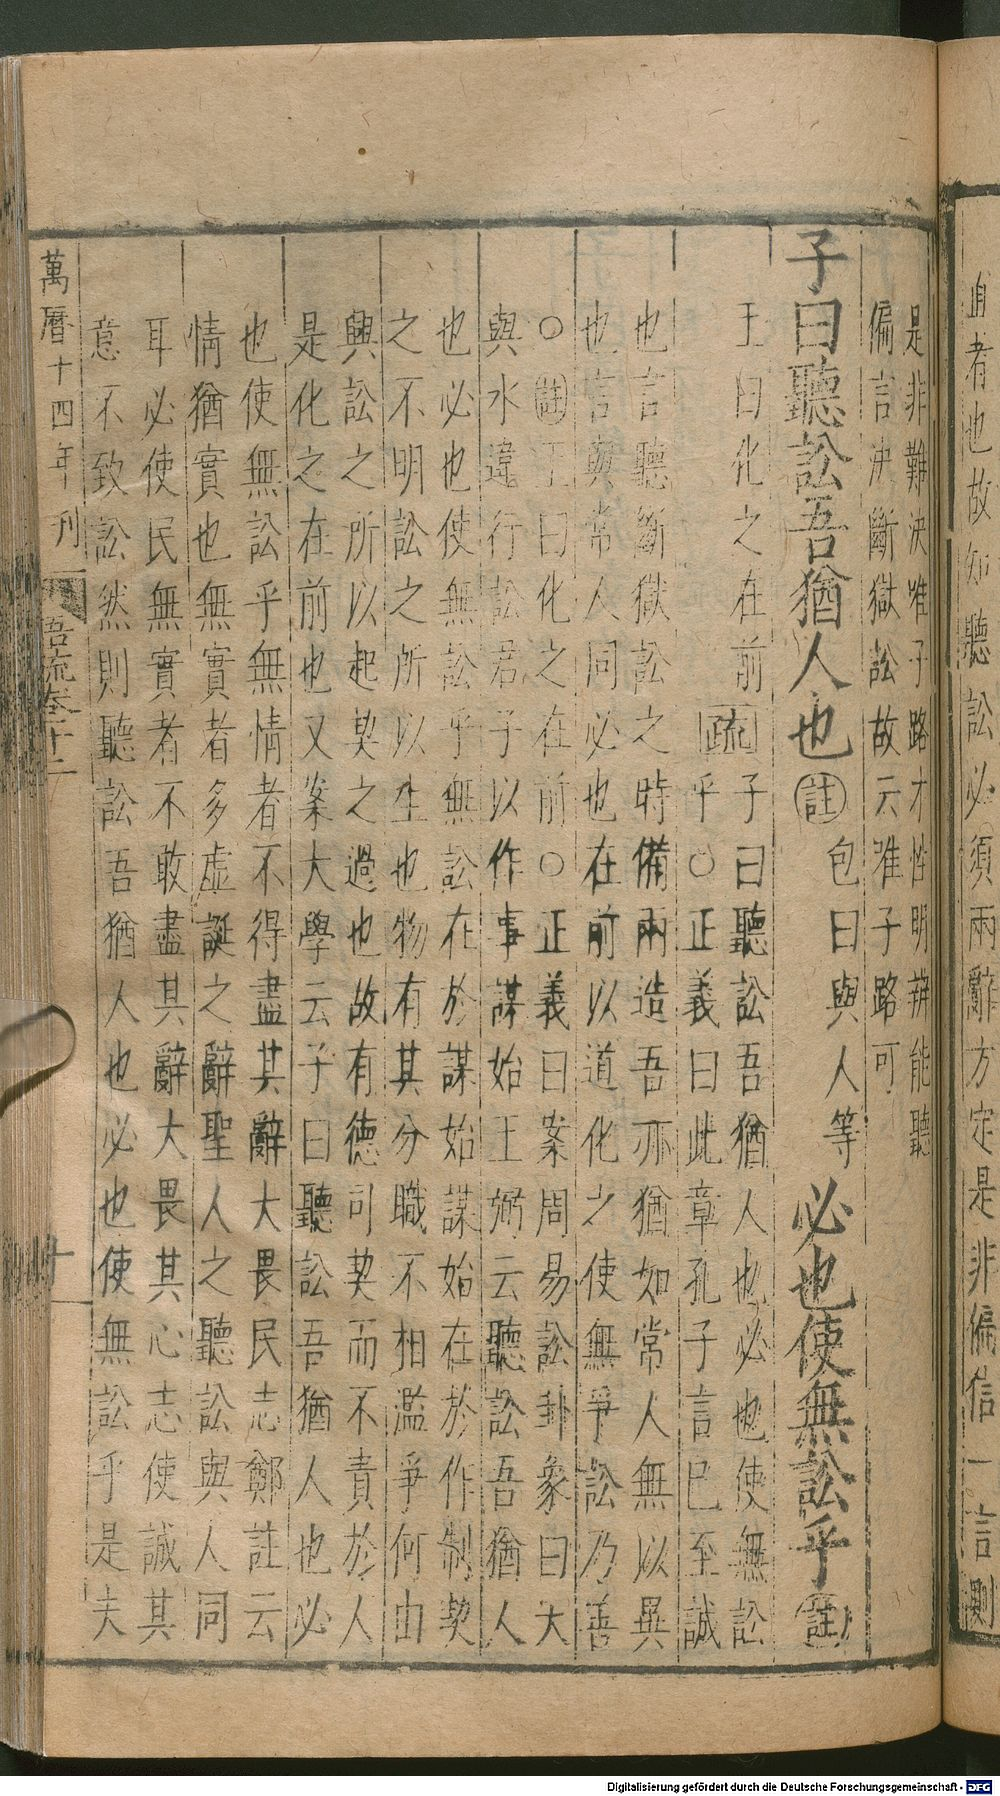 直者也故如聽訟必須兩辭方定是非偏信一言則
是非難決唯子路才性明辨能聽
偏言決斷獄訟故云唯子路可
子曰聽訟吾猶人也 註 包曰與人等 必也使無訟乎 註
王曰化之在前 疏 子曰聽訟吾猶人也必也使無訟
乎○正義曰此章孔子言己至誠
也言聽斷獄訟之時備兩造吾亦猶如常人無以異
也言與常人同必也在前以道化之使無爭訟乃善
○註王曰化之在前○正義曰案周易訟卦象曰大
與水違行訟君子以作事謀始王弼云聽訟吾猶人
也必也使無訟乎無訟在於謀始謀始在於作制契
之不明訟之所以生也物有其分職不相濫爭何由
興訟之所以起契之過也故有德司契而不責於人
是化之在前也又案大學云子曰聽訟吾猶人也必
也使無訟乎無情者不得盡其辭大畏民志鄭註云
情猶實也無實者多虛誕之辭聖人之聽訟與人同
耳必使民無實者不敢盡其辭大畏其心志使誠其
意不致訟然則聽訟吾猶人也必也使無訟乎是夫
萬曆十四年刊 語疏卷十二 十
Digitalisierung gefördert durch die Deutsche Forschungsgemeinschaft - DFG